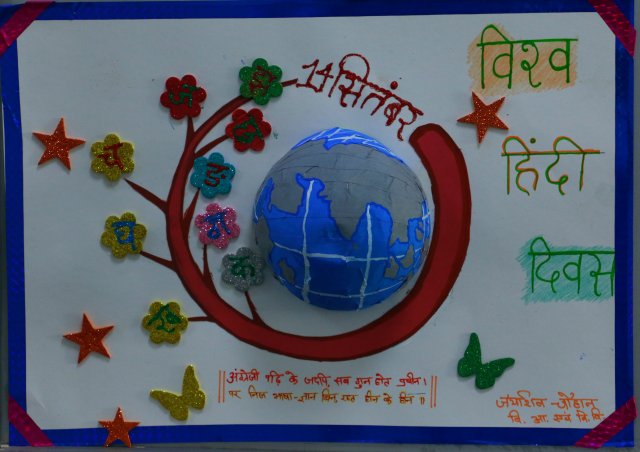 14 सितंबर
विश्व
हिंदी
दिवस
ज
च
ङ
घ
ग
क
॥ अंग्रेजी पढ़ि के जदपि, सब गुन होत प्रवीन।
पर निज भाषा-ज्ञान बिन, रहत हीन के हीन ॥
चौहान